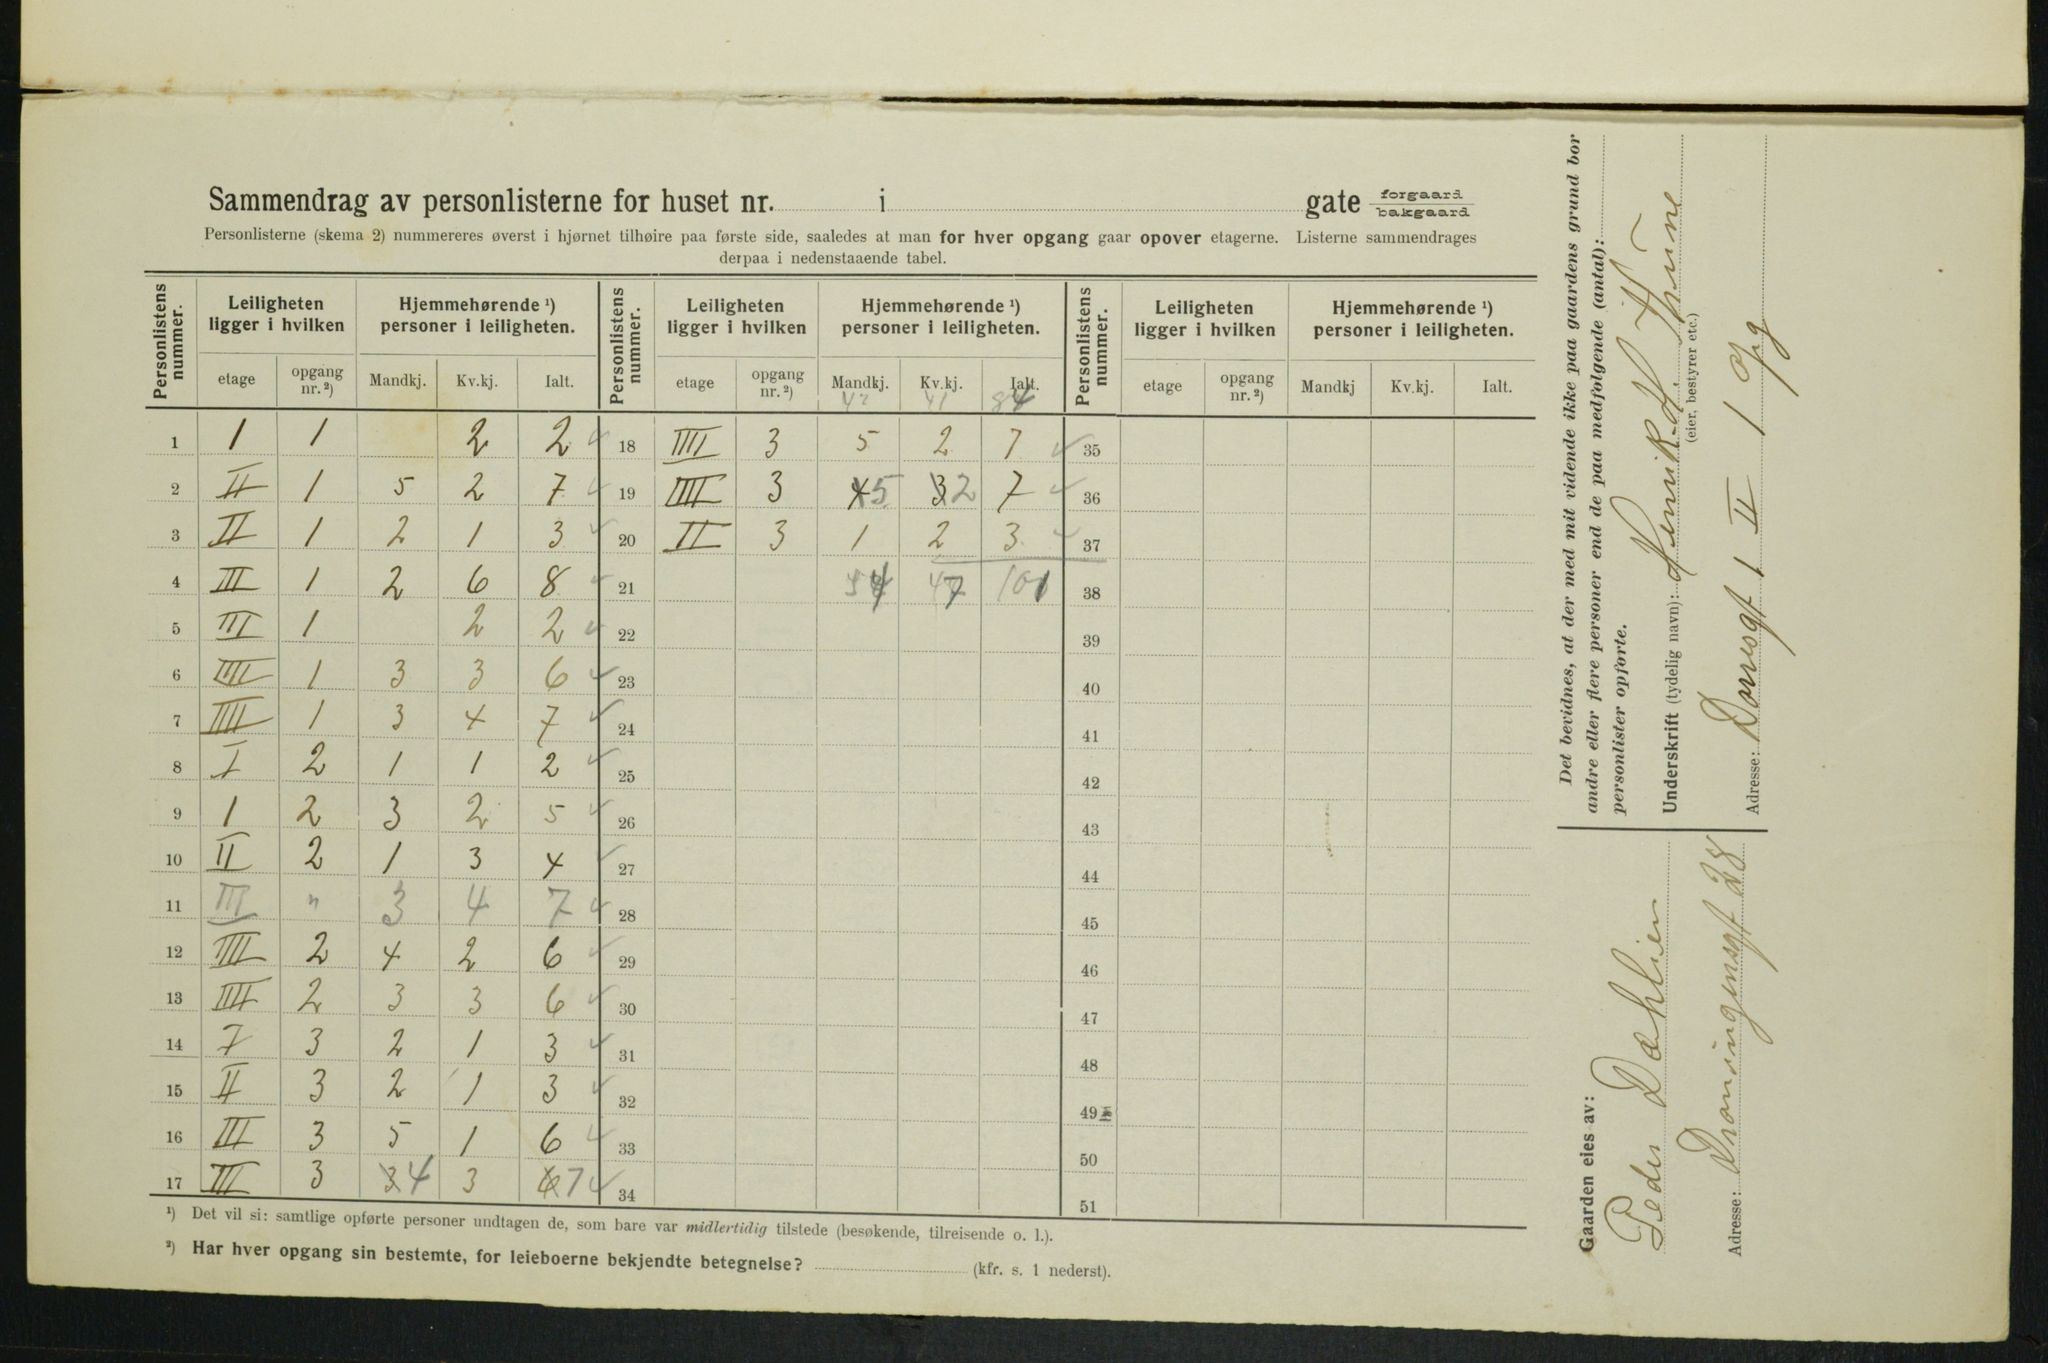 Sammendrag av personlisterne for huset nr. i gate forgaard bakgaard
Personlisterne (skema 2) nummereres øverst i hjørnet tilhøire paa første side, saaledes at man for hver opgang gaar opover etagerne. Listerne sammendrages
derpaa i nedenstaaende tabel.
Personlistens nummer. Leiligheten ligger i hvilken Hjemmehørende ¹) personer i leiligheten. Personlistens nummer. Leiligheten ligger i hvilken Hjemmehørende ¹) personer i leiligheten. Personlistens nummer. Leiligheten ligger i hvilken Hjemmehørende ¹) personer i leiligheten.
etage opgang nr. ²) Mandkj. Kv.kj. Ialt. etage opgang nr. ²) Mandkj. Kv.kj. Ialt. etage opgang nr. ²) Mandkj Kv.kj. Ialt.
41 84
1 1 1 2 2 18 IIII 3 5 2 7 35
2 II 1 5 2 7 19 IIII 3 4 5 3 2 7 36
3 II 1 2 1 3 20 II 3 1 2 3 37
4 III 1 2 6 8 21 54 47 101 38
5 III 1 2 2 22 39
6 IIII 1 3 3 6 23 40
7 IIII 1 3 4 7 24 41
8 I 2 1 1 2 25 42
9 1 2 3 2 5 26 43
10 II 2 1 3 4 27 44
11 III " 3 4 7 28 45
12 IIII 2 4 2 6 29 46
13 IIII 2 3 3 6 30 47
14 7 3 2 1 3 31 48
15 II 3 2 1 3 32 49
16 III 3 5 1 6 33 50
17 III 3 3 4 3 6 7 34 51
¹) Det vil si: samtlige opførte personer undtagen de, som bare var midlertidig tilstede (besøkende, tilreisende o. l.).
²) Har hver opgang sin bestemte, for leieboerne bekjendte betegnelse? (kfr. s. 1 nederst).
Det bevidnes, at der med mit vidende ikke paa gaardens grund bor
andre eller flere personer end de paa medfølgende (antal):
personlister opførte.
Underskrift (tydelig navn): Henrik Thune
(eier, bestyrer etc.)
Adresse: 1 II 1 Opg
Gaarden eies av:
Peder Dæhlien
Adresse: Dronningensgt 28